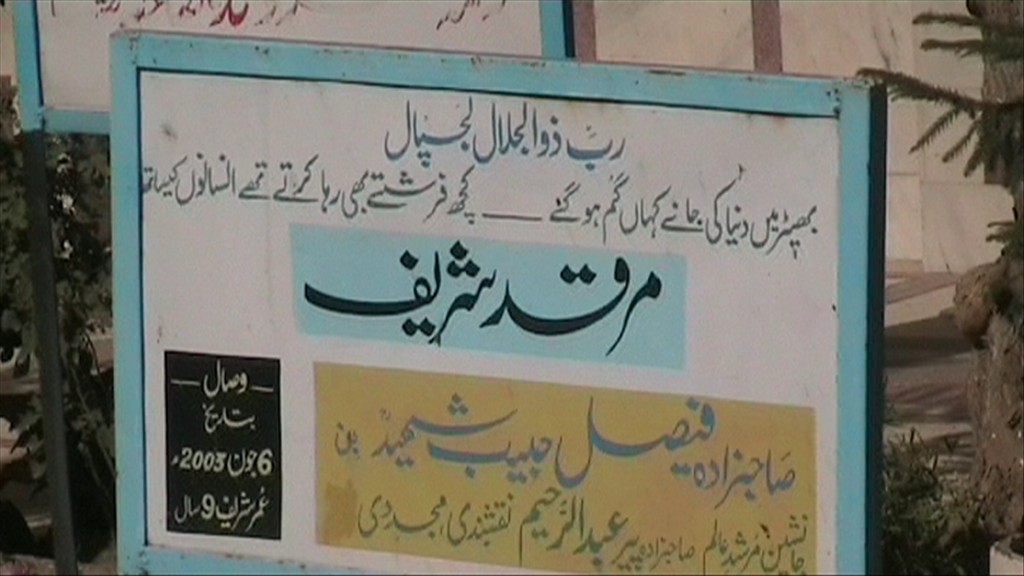 ربّ ذوالجلال لجپال
بھیڑ میں دنیا کی جانے کہاں گم ہو گئے ــــ کچھ فرشتے بھی رہا کرتے تھے انسانوں کیساتھ
مرقد شریف
صاحبزادہ فیصل حبیب شہید بن
جانشین مرشد عالم صاحبزادہ پیر عبدالرّحیم نقشبندی مجددی
وصال
بتاریخ
6 جون 2003ء
عمر شریف 9 سال